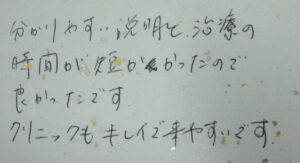 分かりやすい説明と、治療の
時間が短かかったので
良かったです
クリニックもキレイで来やすいです